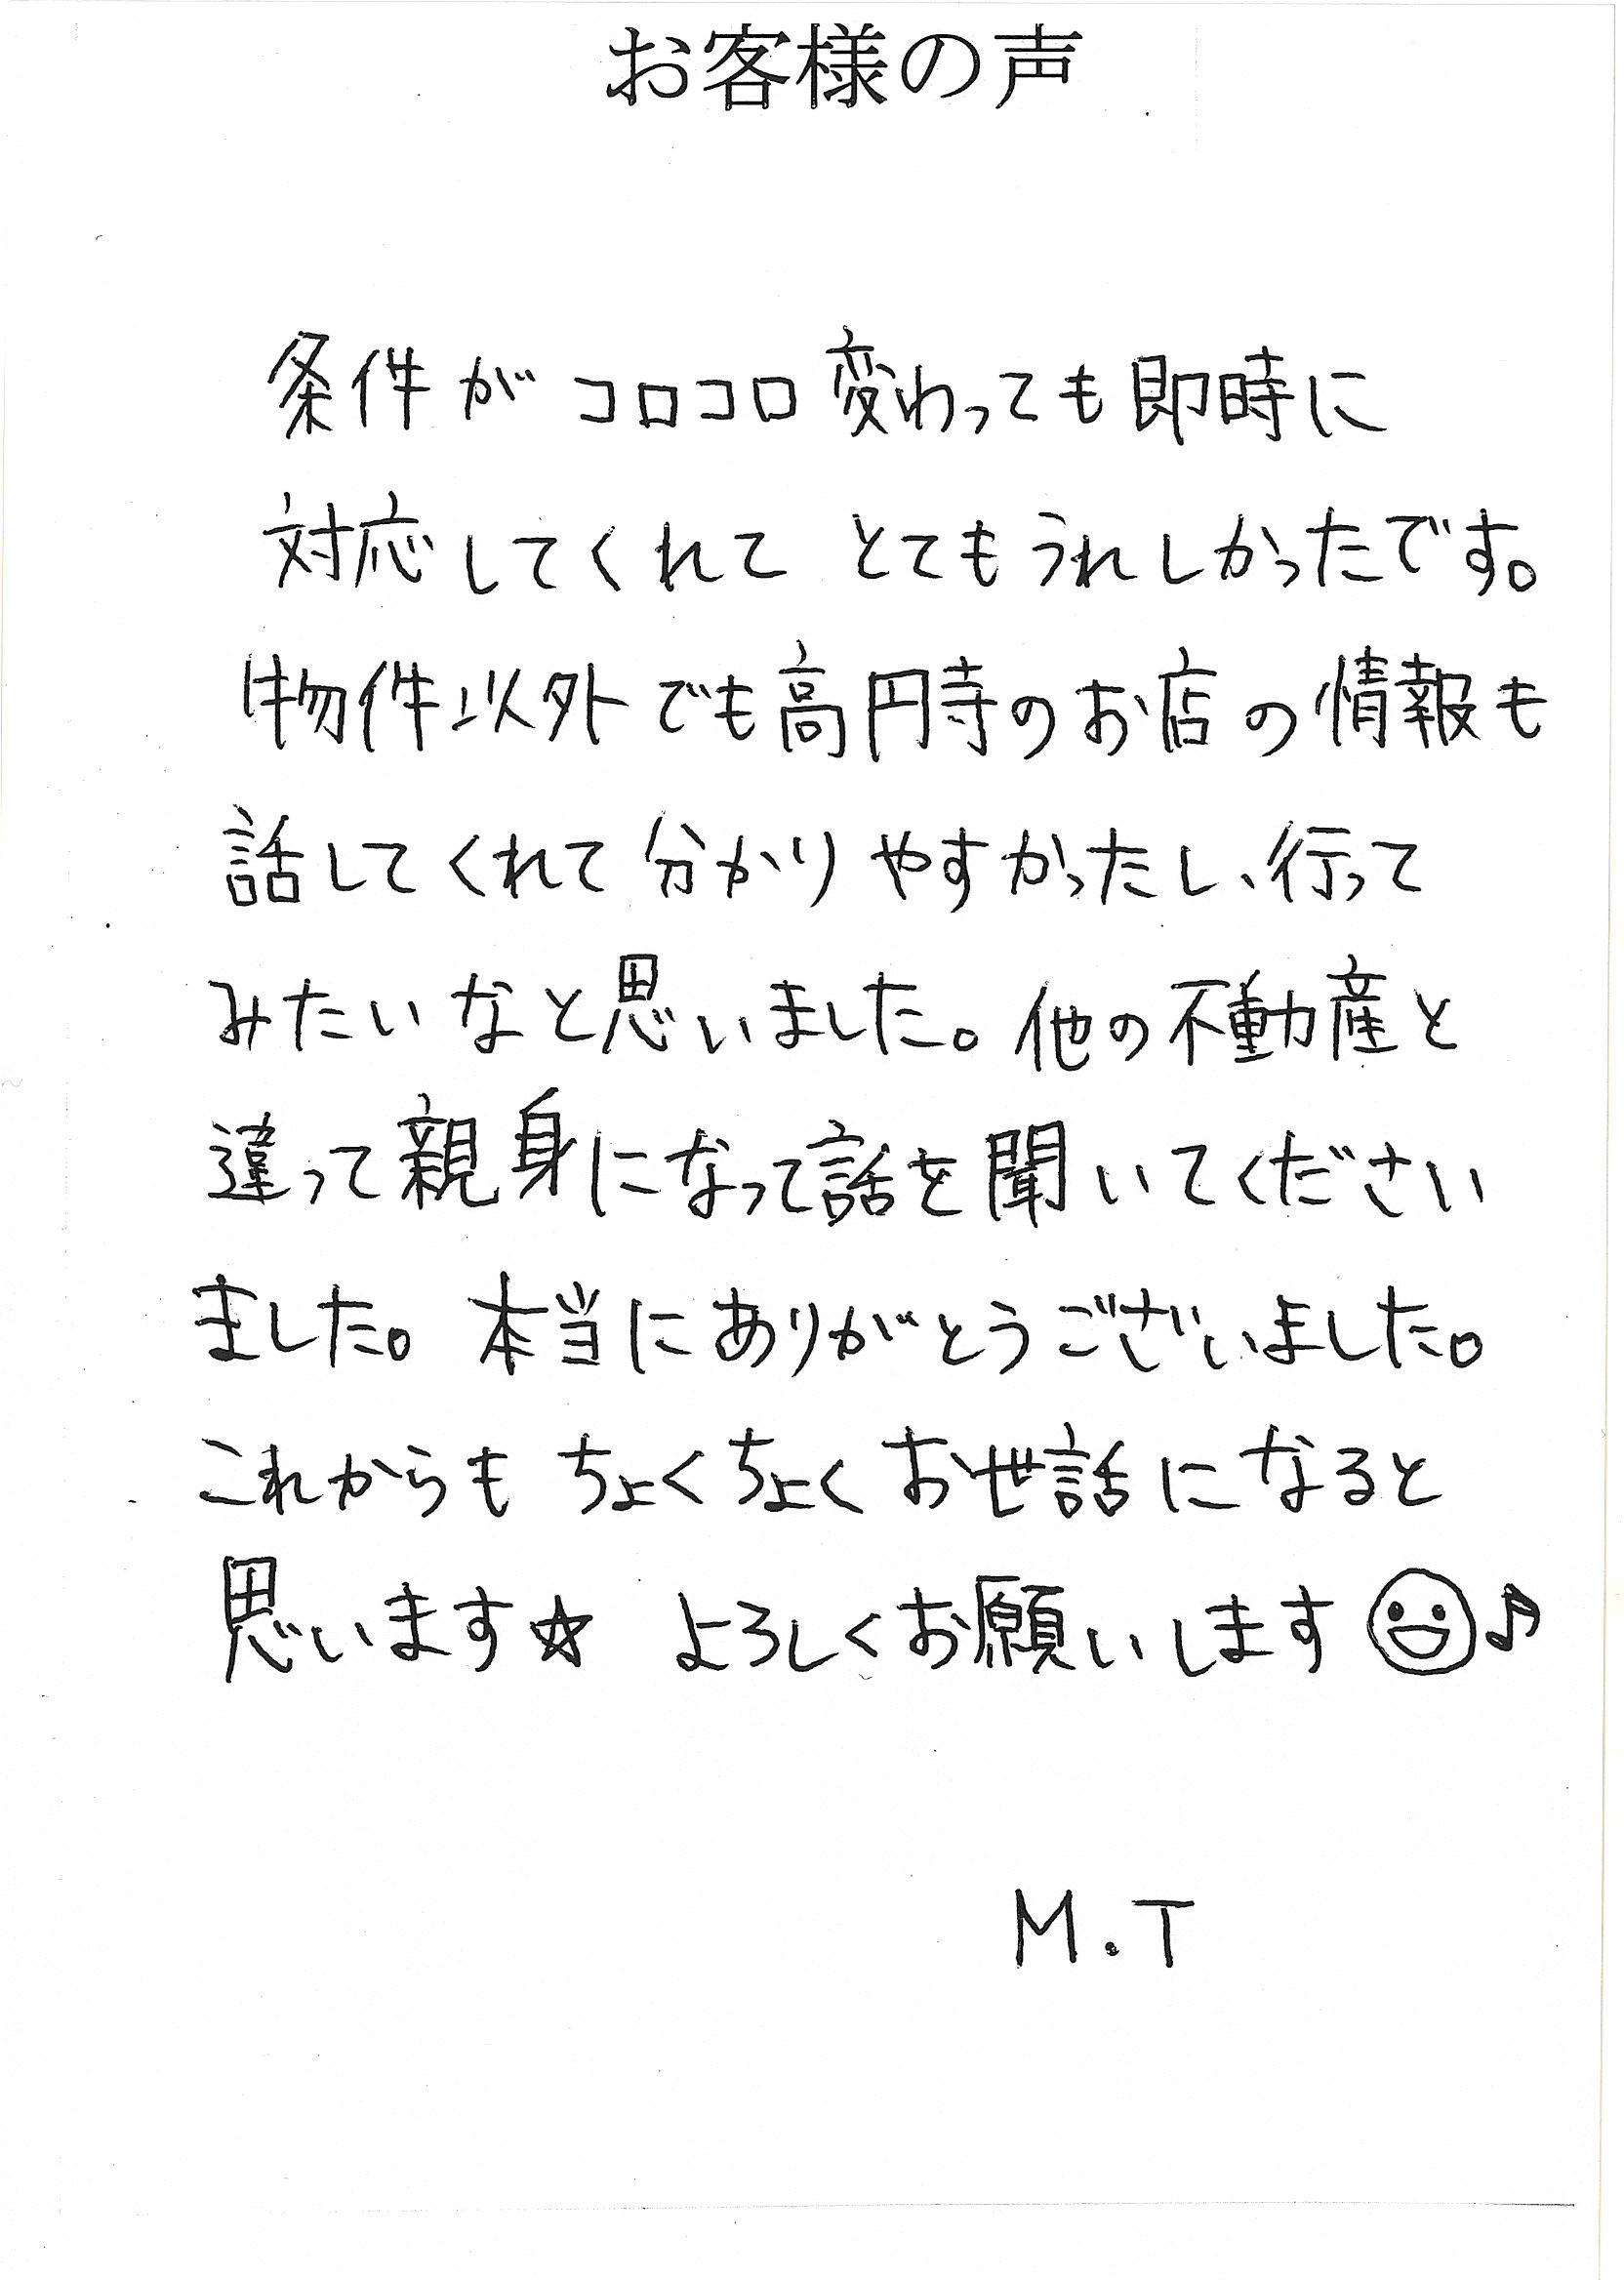 お客様の声
条件がコロコロ変わっても即時に
対応してくれて とてもうれしかったです。
物件以外でも高円寺のお店の情報も
話してくれて分かりやすかったし、行って
みたいなと思いました。他の不動産と
違って親身になって話を聞いてください
ました。本当にありがとうございました。
これからもちょくちょくお世話になると
思います☆ よろしくお願いします☺♪
M.T